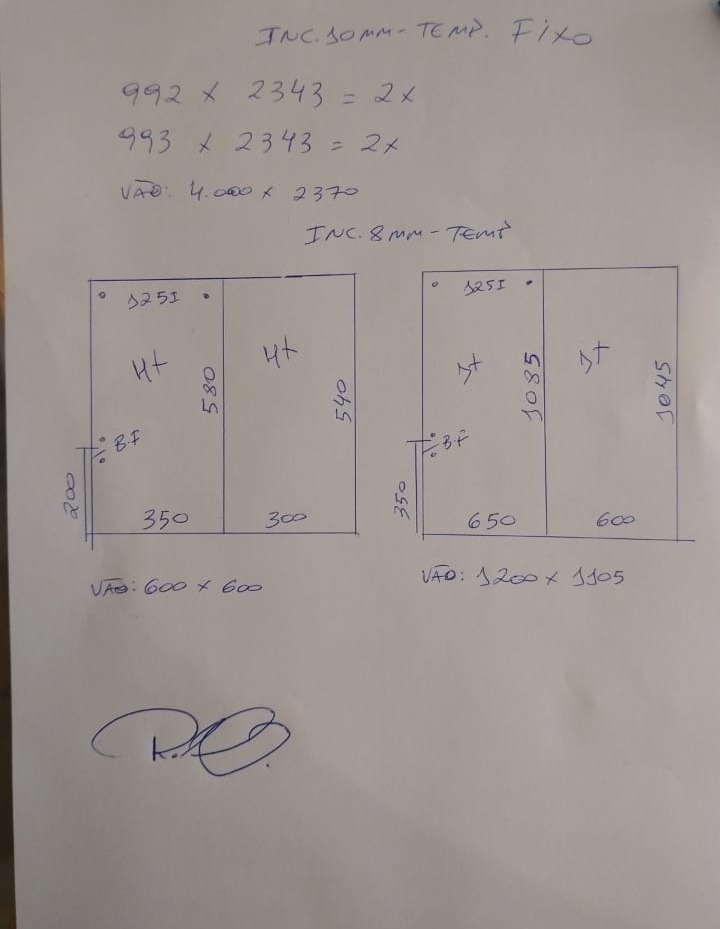 INC. 10MM - TEMP. FIXO
992 x 2343 = 2x
993 x 2343 = 2x
VÃO: 4.000 x 2370
INC. 8MM - TEMP
1251
4x
4x
580
540
B.F
200
350
300
VÃO: 600 x 600
1251
1x
1x
1085
1045
B.F
350
650
600
VÃO: 1200 x 1105